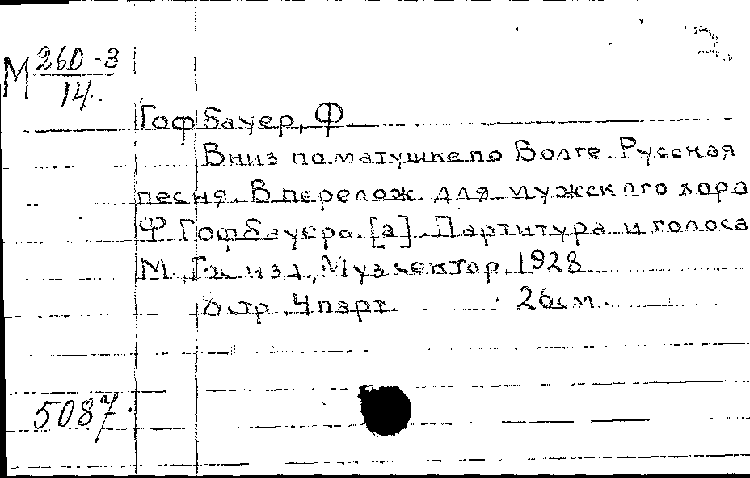 М 260-3
14.
Гофбауер, Ф
Вниз по матушке по Волге. Русская
песня. В перелож. для мужского хора
Ф Гофбауера. [а]. Партитура и голоса
М., Гос изд., Музсектор, 1928
стр. 4 парт. 26см.
5087.